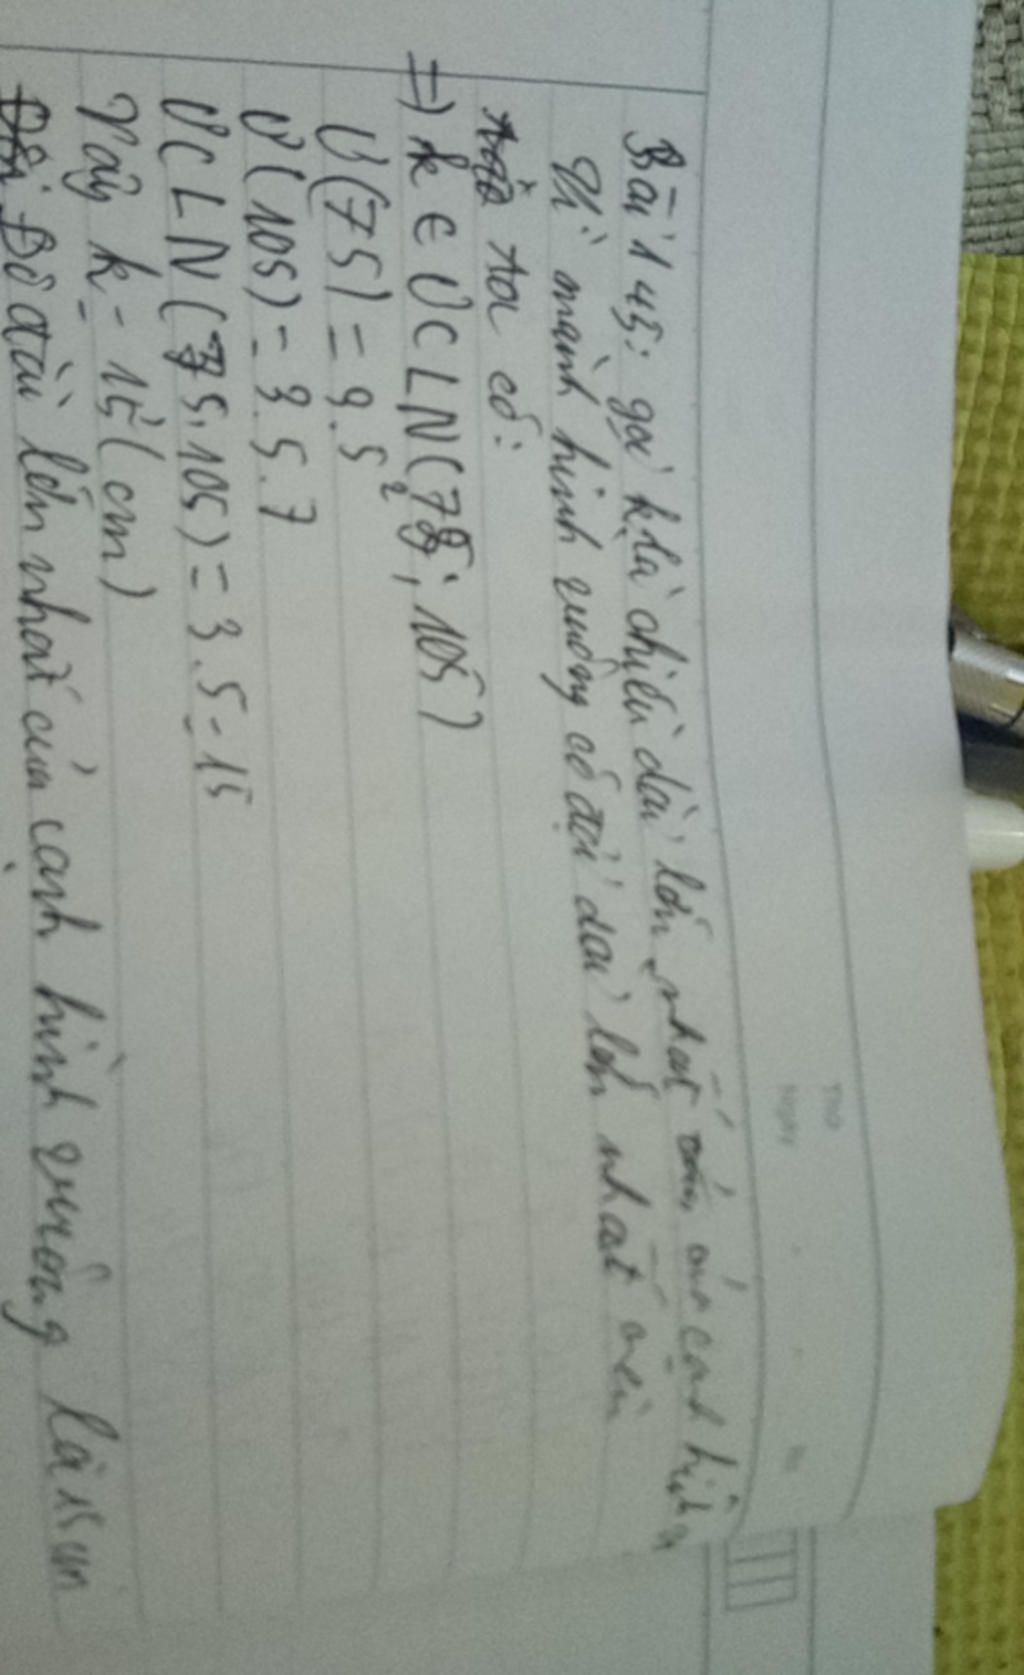 Thứ
Ngày
No
Bài 145: gọi k là chiều dài lớn nhất của cạnh hình
Vì mảnh hình vuông có độ dài lớn nhất nên
ta có:
=) k ∈ ƯCLN(75; 105)
Ư(75) = 3.5²
Ư(105) = 3.5.7
ƯCLN(75,105) = 3.5=15
Vậy k = 15 (cm)
Độ dài lớn nhất của cạnh hình vuông là 15 cm